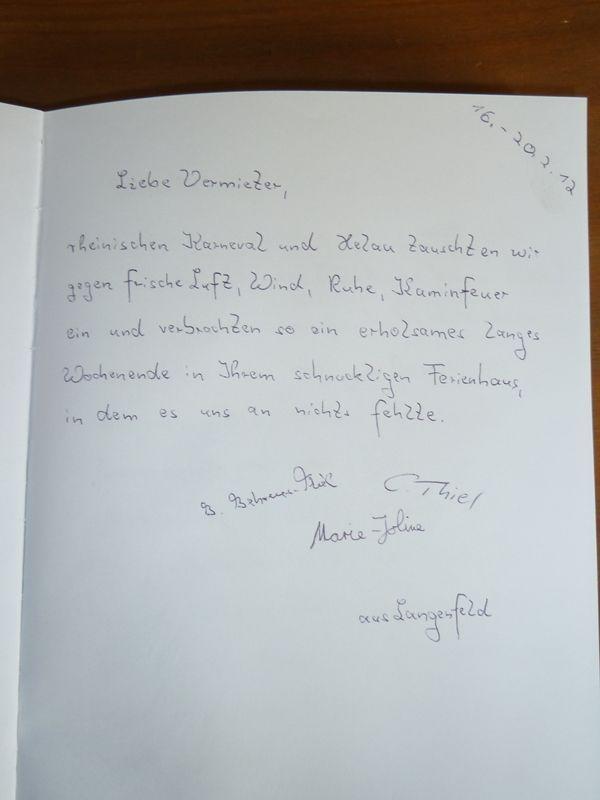 16. - 20.2.12
Liebe Vermieter,
rheinischen Karneval und Helau tauschten wir
gegen frische Luft, Wind, Ruhe, Kaminfeuer
ein und verbrachten so ein erholsames langes
Wochenende in Ihrem schnuckligen Ferienhaus,
in dem es uns an nichts fehlte.
B. C. Thiel
Marie-Joline
aus Langenfeld